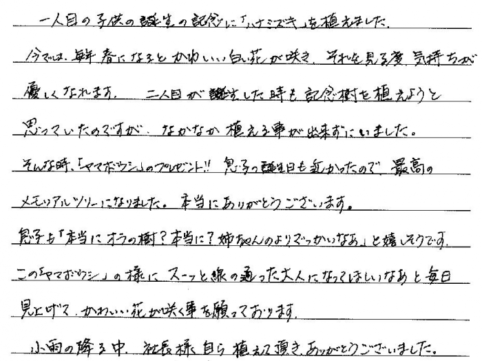 一人目の子供の誕生の記念に「ハナミズキ」を植えました。
今では、毎年春になるとかわいい白い花が咲き、それを見る度、気持ちが
優しくなれます。 二人目が誕生した時も記念樹を植えようと
思っていたのですが、なかなか植える事が出来ずにいました。
そんな時、「ヤマボウシ」のプレゼント!! 息子の誕生日も近かったので、最高の
メモリアルツリーになりました。本当にありがとうございます。
息子も「本当にオラの樹?本当に?姉ちゃんのよりでっかいなあ」と嬉しそうです。
この「ヤマボウシ」の様に、スーッと線の通った大人になってほしいなあと毎日
見上げて、かわいい花が咲く事を願っております。
小雨の降る中、社長様自ら植えて頂き、ありがとうございました。